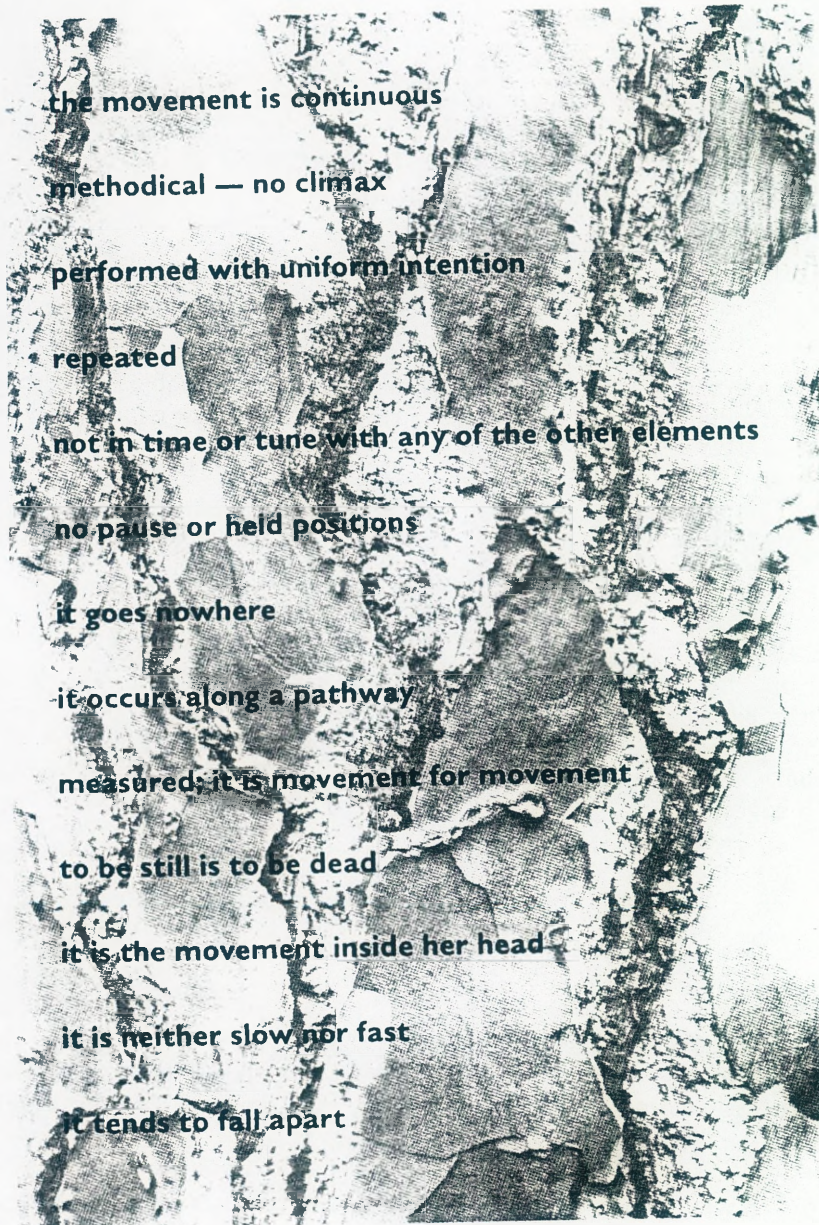 the movement is continuous
methodical — no climax
performed with uniform intention
repeated
not in time or tune with any of the other elements
no pause or held positions
it goes nowhere
it occurs along a pathway
measured; it is movement for movement
to be still is to be dead
it is the movement inside her head
it is neither slow nor fast
it tends to fall apart